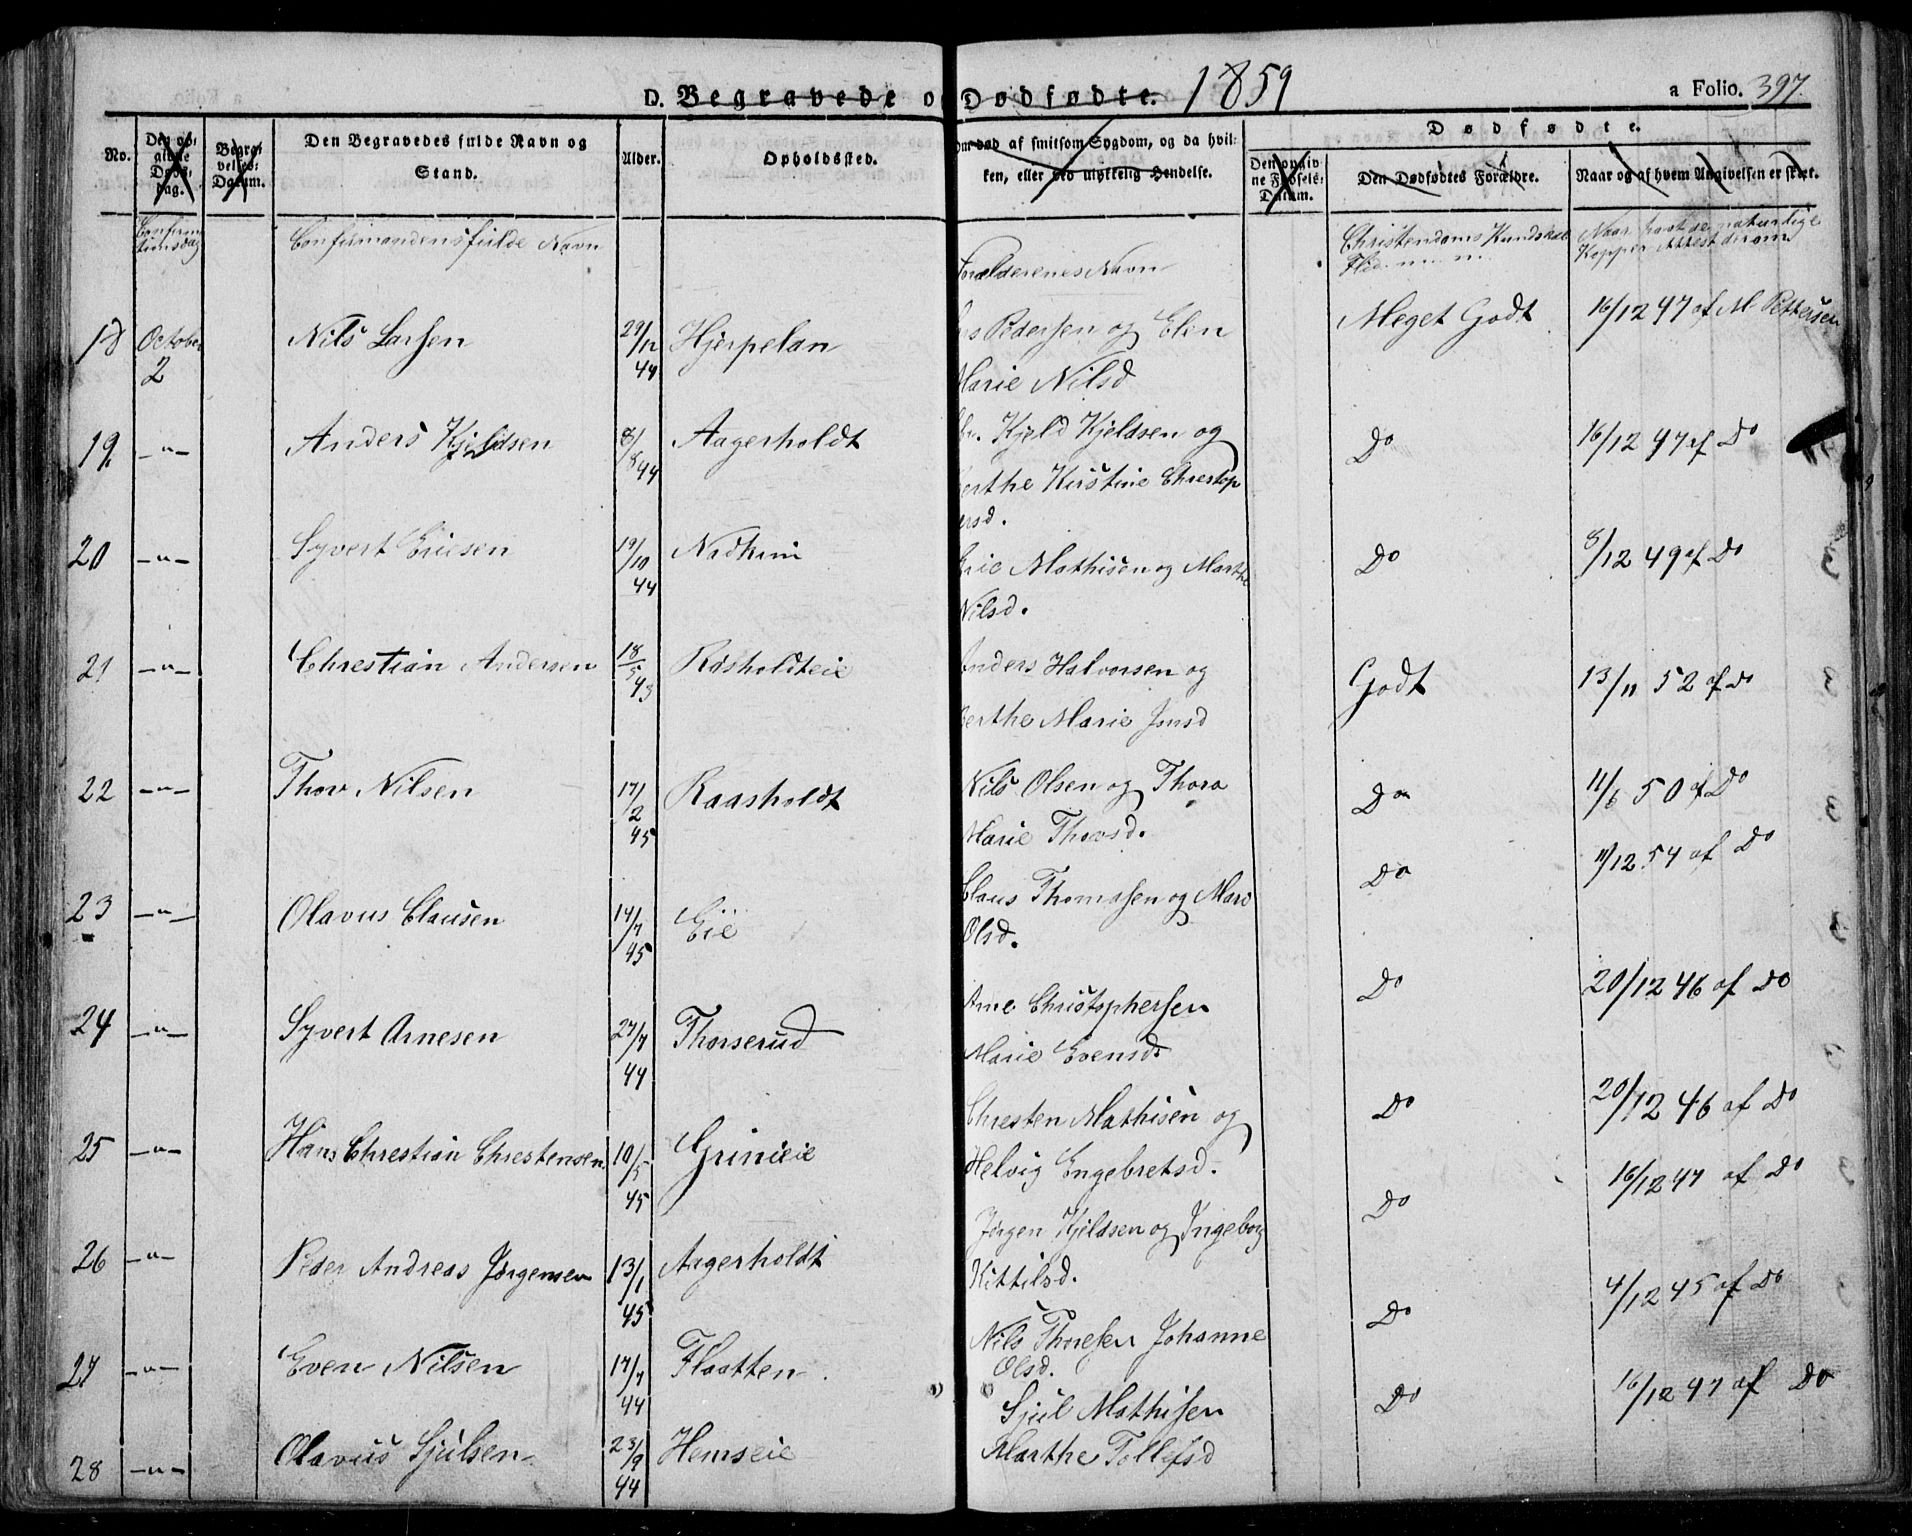 D. Begravede o Dødfødte. 1859 a Folio. 397
No. Den op- givne Døds- dag. Begra- velses- Datum. Den Begravedes fulde Navn og Stand. Alder. Opholdssted. Om død af smitsom Sygdom, og da hvil- ken, eller ved ulykkelig Hendelse. Dødfødte. Den opgiv- ne Fødsels- Datum. Den Dødfødtes Forældre. Naar og af hvem Angivelsen er skeet.
Confirma tionsdag Confirmandens fulde Navn Forælderenes Navn Christendoms Kundskab Flid Naar havt de naturlige Kopper Attest derom
18 October 2 Nils Larsen 29/12 44 Hjerpelan s Pedersen og Elen Meget Godt 16/12 47 af M Pettersen
Marie Nilsd
19 -"- Anders Kjeldsen 8/8 44 Aagerholdt Kjeld Kjeldsen og Do 16/12 47 af Do
erthe Kirstine Chrestop
ersd.
20 -"- Syvert Ericsen 19/10 44 Eric Mathisen og Marthe Do 8/12 49 af Do
Nilsd.
21 -"- Chrestian Andersen 18/5 43 Rasholdteie Anders Halvorsen og Godt 13/11 52 af Do
erthe Marie Jonsd
22 -"- Thov Nilsen 17/2 45 Raasholdt Nils Olsen og Thora Do 11/6 50 af Do
Marie Thovsd.
23 -"- Olavus Clausen 14/7 45 Eie Claus Thomasen og Mare Do 11/12 54 af Do
Olsd.
24 -"- Syvert Arnesen 27/7 44 Thorserud Arne Christophersen Do 20/12 46 af Do
Marie Evensd
25 -"- Hans Chrestian Chrestensen 10/5 45 Grinieie Chresten Mathisen og Do 20/12 46 af Do
Helvig Engebretsd.
26 -"- Peder Andreas Jørgensen 13/1 45 Aagerholdt Jørgen Kjeldsen og Ingeborg Do 16/12 47 af Do
Kittilsd.
27 -"- Even Nilsen 17/7 44 Flaatten Nils Thoresen Johanne Do 4/12 45 af Do
Olsd.
28 -"- Olavus Sjulsen 23/9 44 Hemseie Sjul Mathisen Do 16/12 47 af Do
Marthe Tollefsd